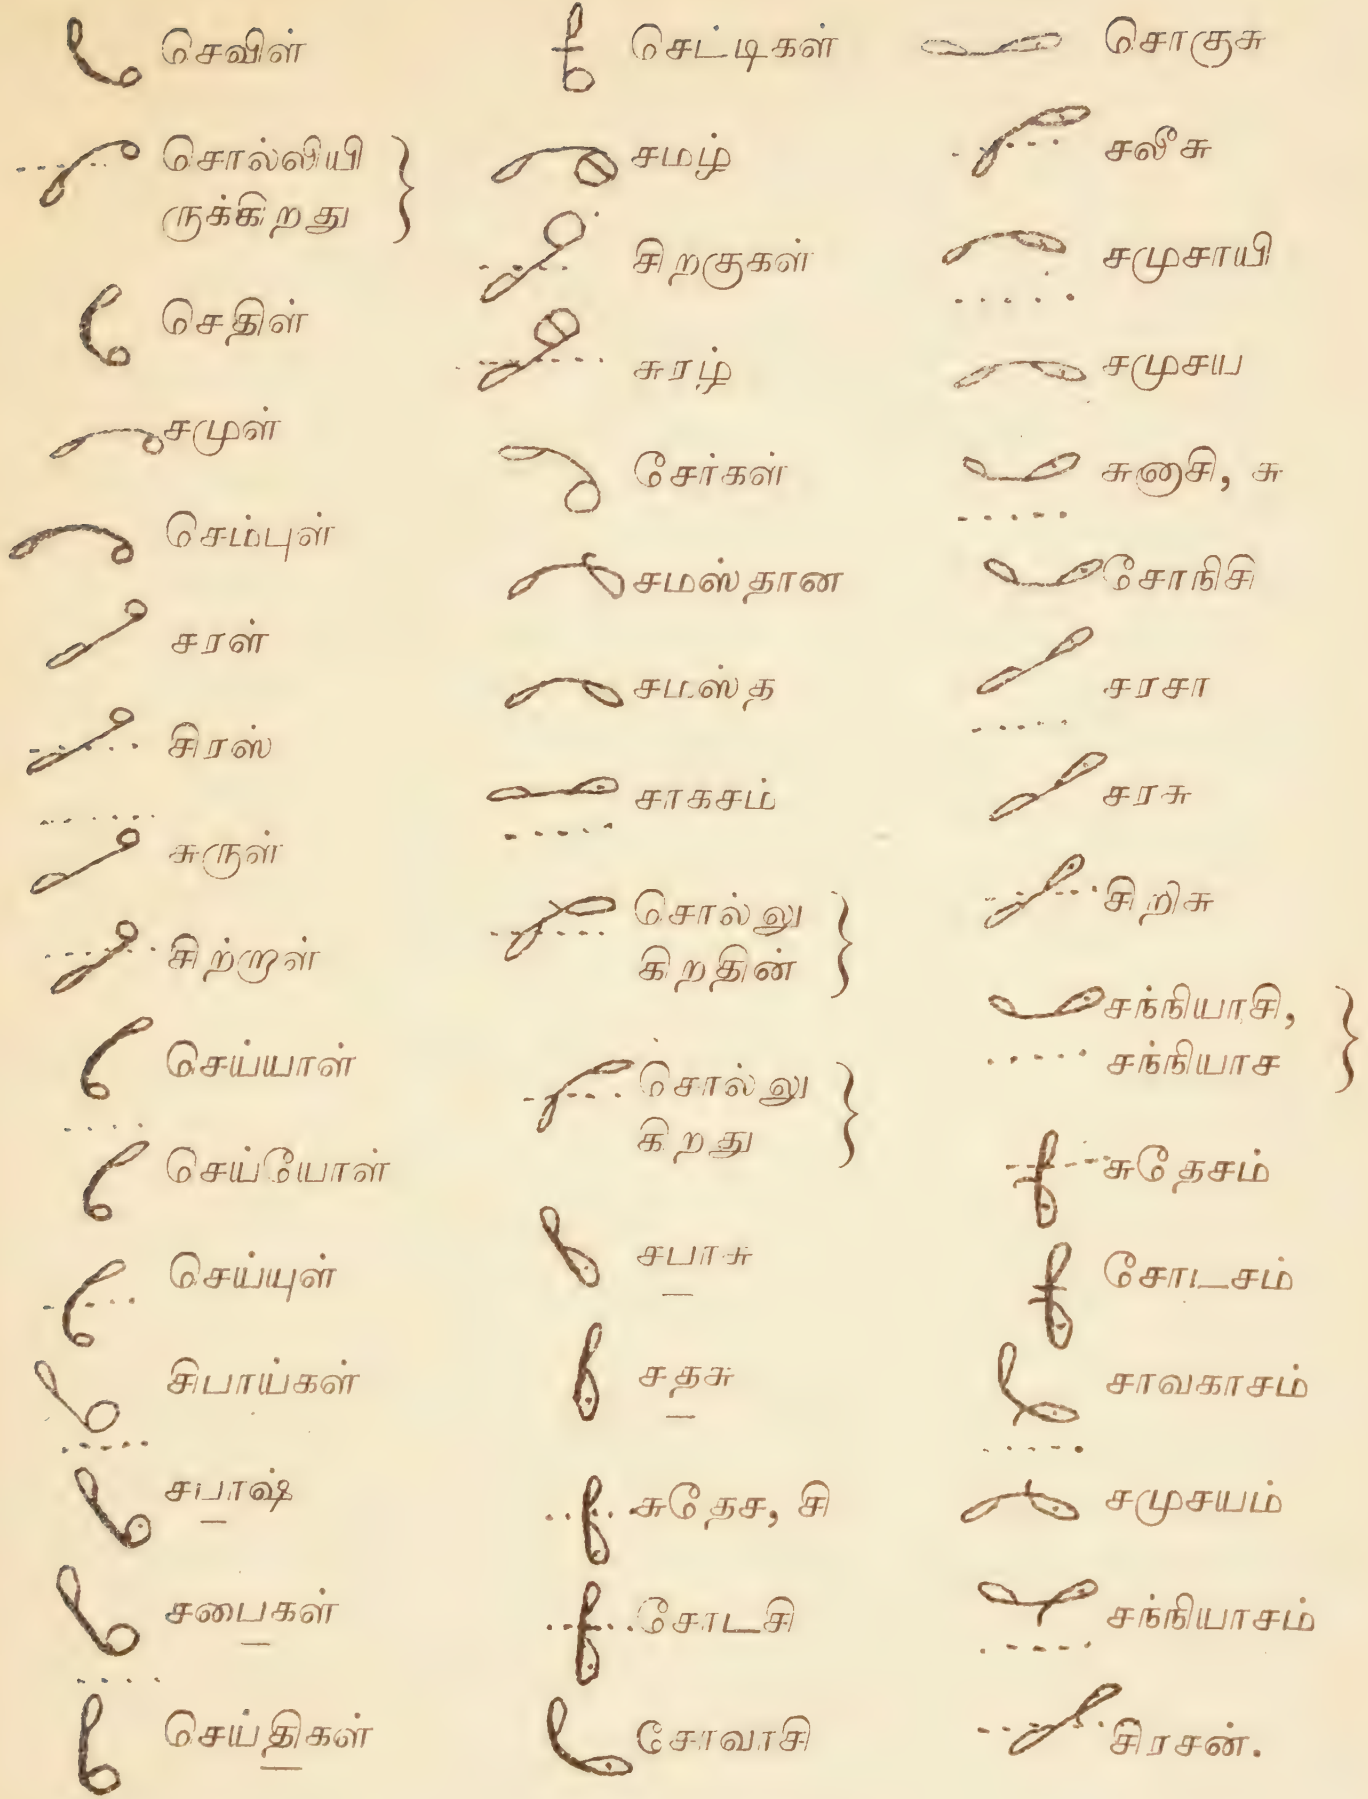 செவிள்
சொல்லியி
ருக்கிறது
செதிள்
சமுள்
செம்புள்
சரள்
சிரஸ்
சுருள்
சிற்றாள்
செய்யாள்
செய்யோள்
செய்யுள்
சிபாய்கள்
சபாஷ்
சபைகள்
செய்திகள்
செட்டிகள்
சமழ்
சிறகுகள்
சுரழ்
சேர்கள்
சமஸ்தான
சமஸ்த
சாகசம்
சொல்லு
கிறதின்
சொல்லு
கிறது
சபாசு
சதசு
சுதேச, சி
சோடசி
சோவாசி
சொகுசு
சலீசு
சமுசாயி
சமுசய
சுனாசி, சு
சோநிசி
சரசா
சரசு
சிறிசு
சந்நியாசி,
சந்நியாச
சுதேசம்
சோடசம்
சாவகாசம்
சமுசயம்
சந்நியாசம்
சிரசன்.